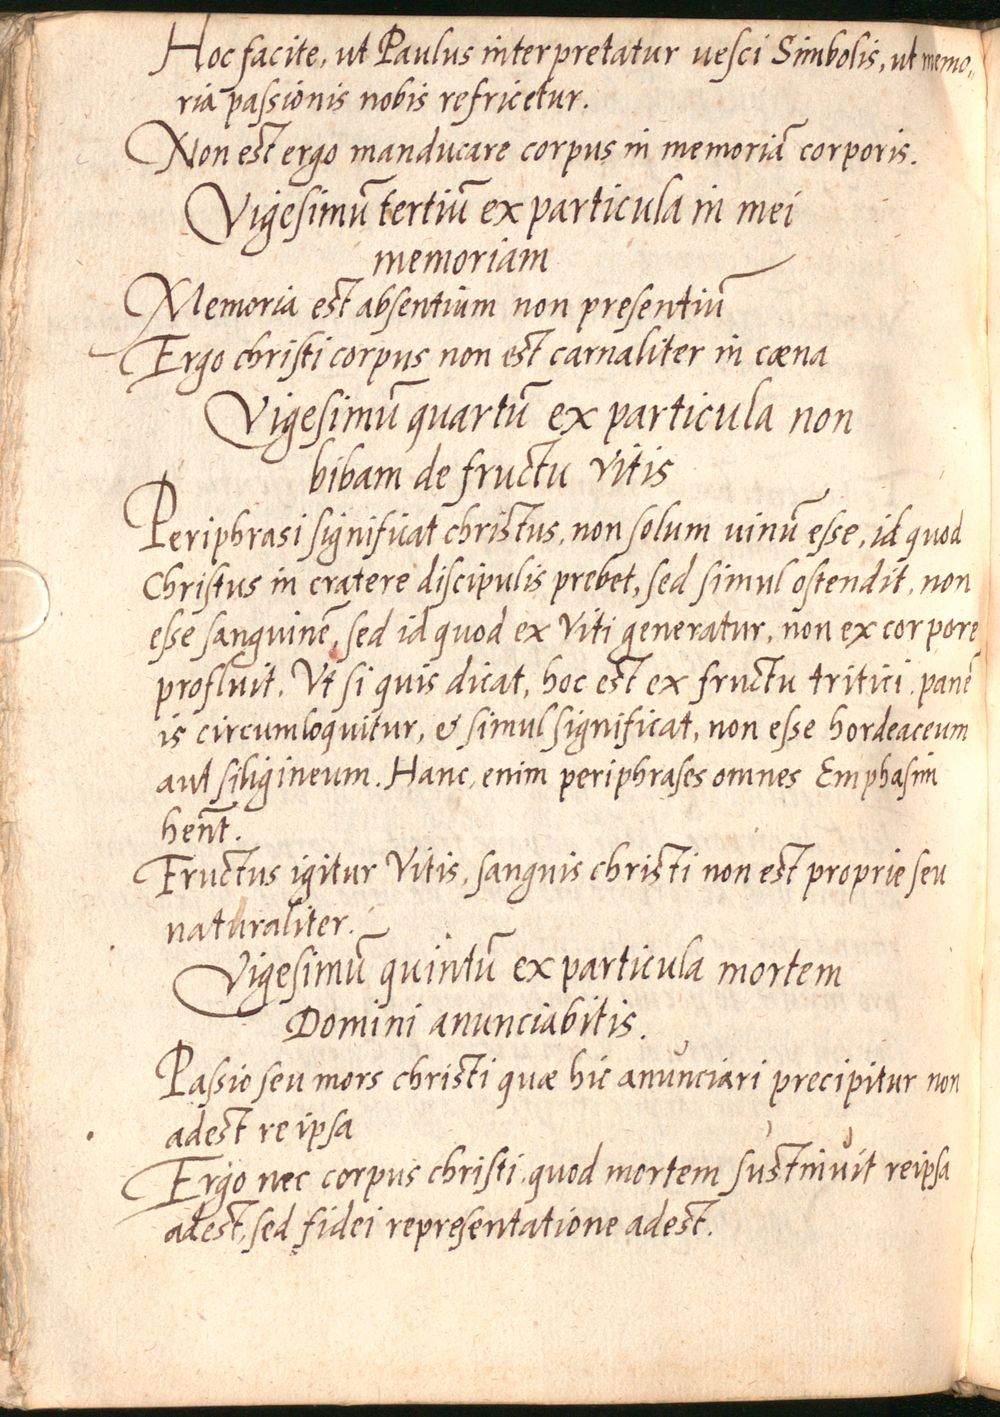 Hoc facite, ut Paulus interpretatur vesci Simbolis, ut memo„
riā passionis nobis refricetur.
Non est ergo manducare corpus in memoriā corporis.
Vigesimū tertiū ex particula in mei
memoriam
Memoria est absentium non presentiū
Ergo christi corpus non est carnaliter in cæna
Vigesimū quartū ex particula non
bibam de fructu Vitis
Periphrasi significat christus, non solum uinū esse, id quod
Christus in cratere discipulis prebet, sed simul ostendit, non
esse sanguinē, sed id quod ex Viti generatur, non ex corpore
profluit. Ut si quis dicat, hoc est ex fructu tritici, panē
is circumloquitur, & simul significat, non esse hordeaceum
aut siligineum. Hanc, enim periphrases omnes Emphasim
hēnt.
Fructus igitur Vitis, sanguis christi non est proprie seu
naturaliter.
Vigesimū quintū ex particula mortem
Domini anunciabitis.
Passio seu mors christi quæ hic anunciari precipitur non
adest re ipsa
Ergo nec corpus christi, quod mortem sustinuit reipsa
adest, sed fidei representatione adest.